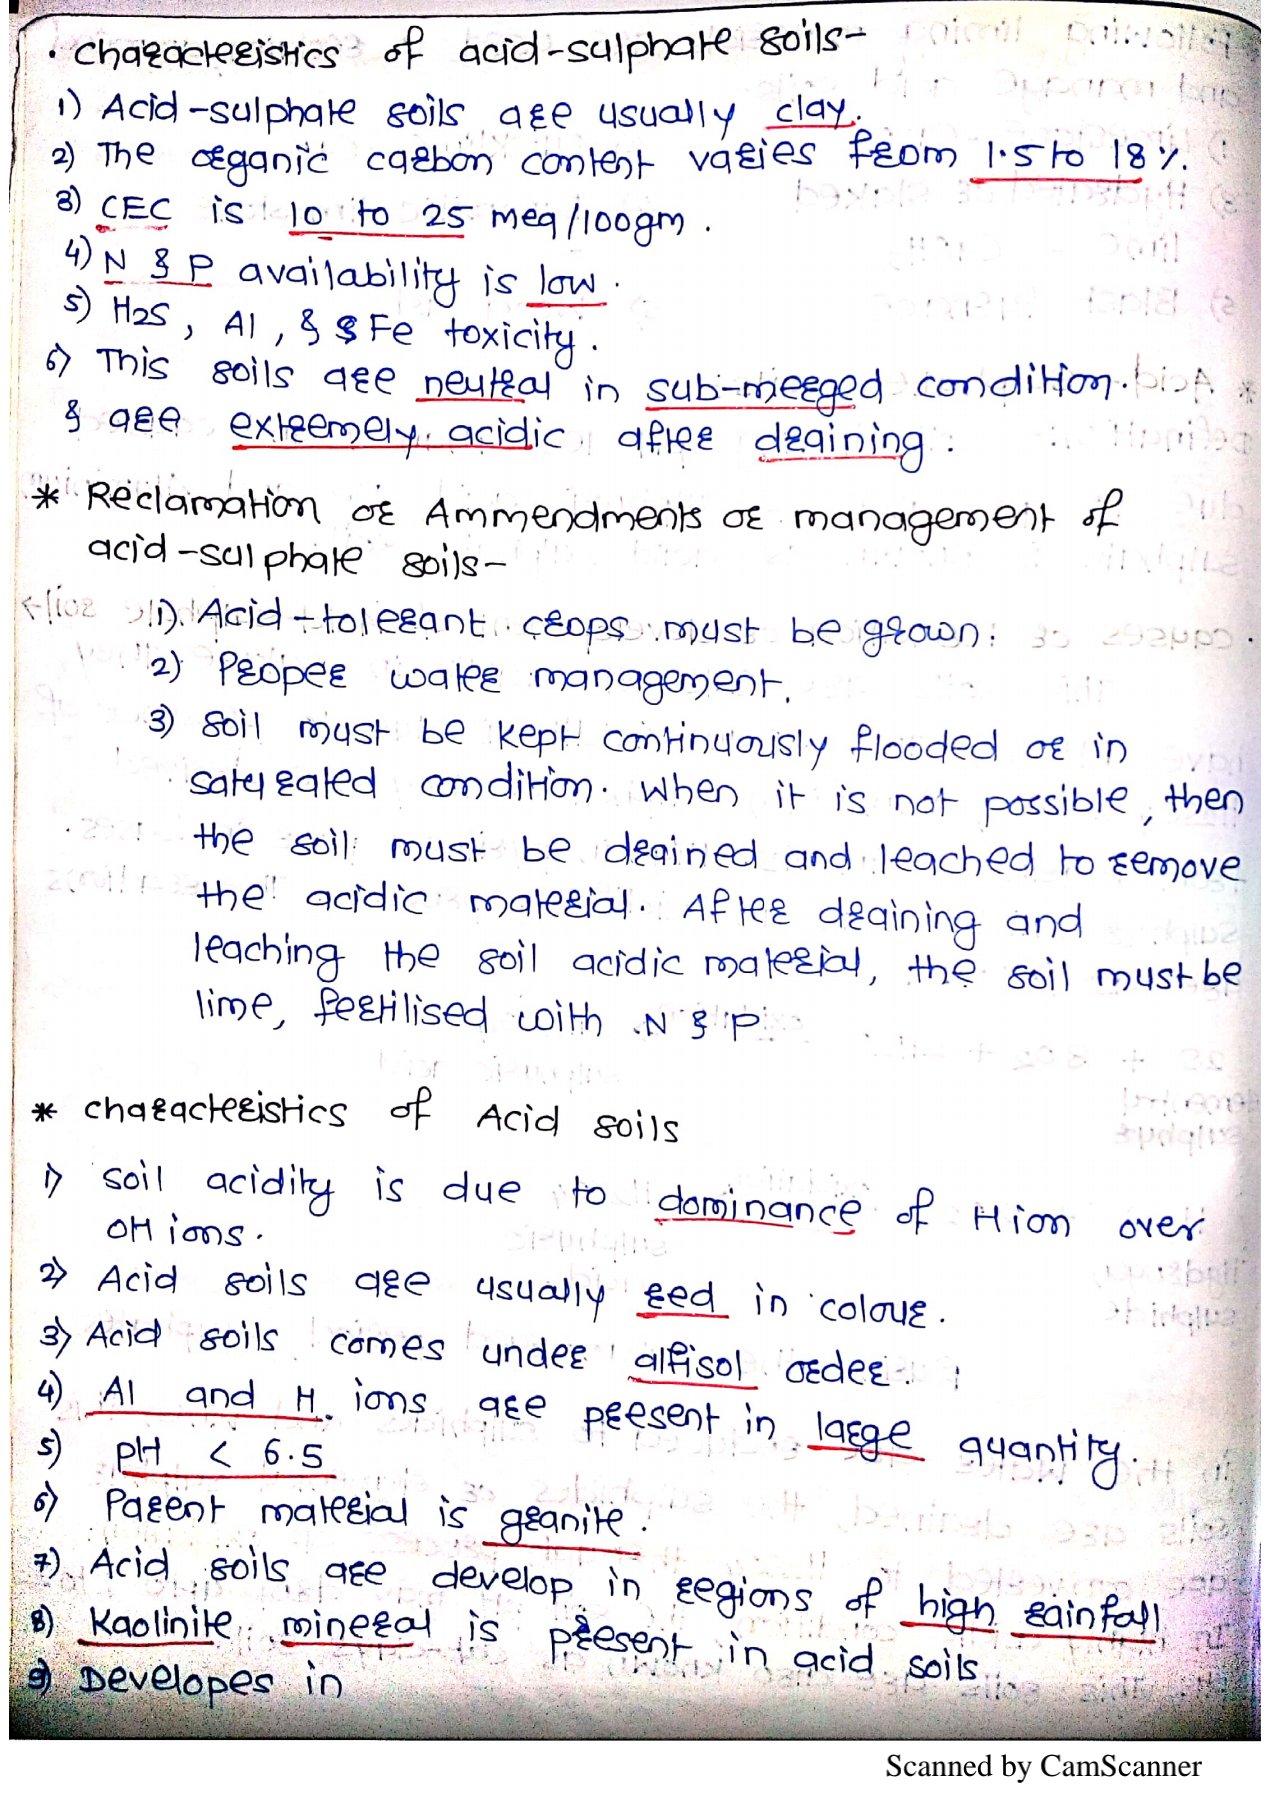 • Characteristics of acid-sulphate soils-
1) Acid-sulphate soils are usually clay.
2) The organic carbon content varies from 1.5 to 18 %.
3) CEC is 10 to 25 meq/100gm.
4) N & P availability is low.
5) H2S, Al, & & Fe toxicity.
6) This soils are neutral in sub-merged condition.
& are extremely acidic after draining.
* Reclamation or Ammendments or management of
acid-sulphate soils-
1). Acid-tolerant crops must be grown.
2) Proper water management.
3) Soil must be kept continuously flooded or in
saturated condition. When it is not possible, then
the soil must be drained and leached to remove
the acidic material. After draining and
leaching the soil acidic material, the soil must be
lime, fertilised with N & P
* Characteristics of Acid soils
1) Soil acidity is due to dominance of H ion over
OH ions.
2) Acid soils are usually red in colour.
3) Acid soils comes under alfisol order.
4) Al and H ions are present in large quantity.
5) pH < 6.5
6) Parent material is granite.
7) Acid soils are develop in regions of high rainfall
8) Kaolinite mineral is present in acid soils
9) Developes in
Scanned by CamScanner